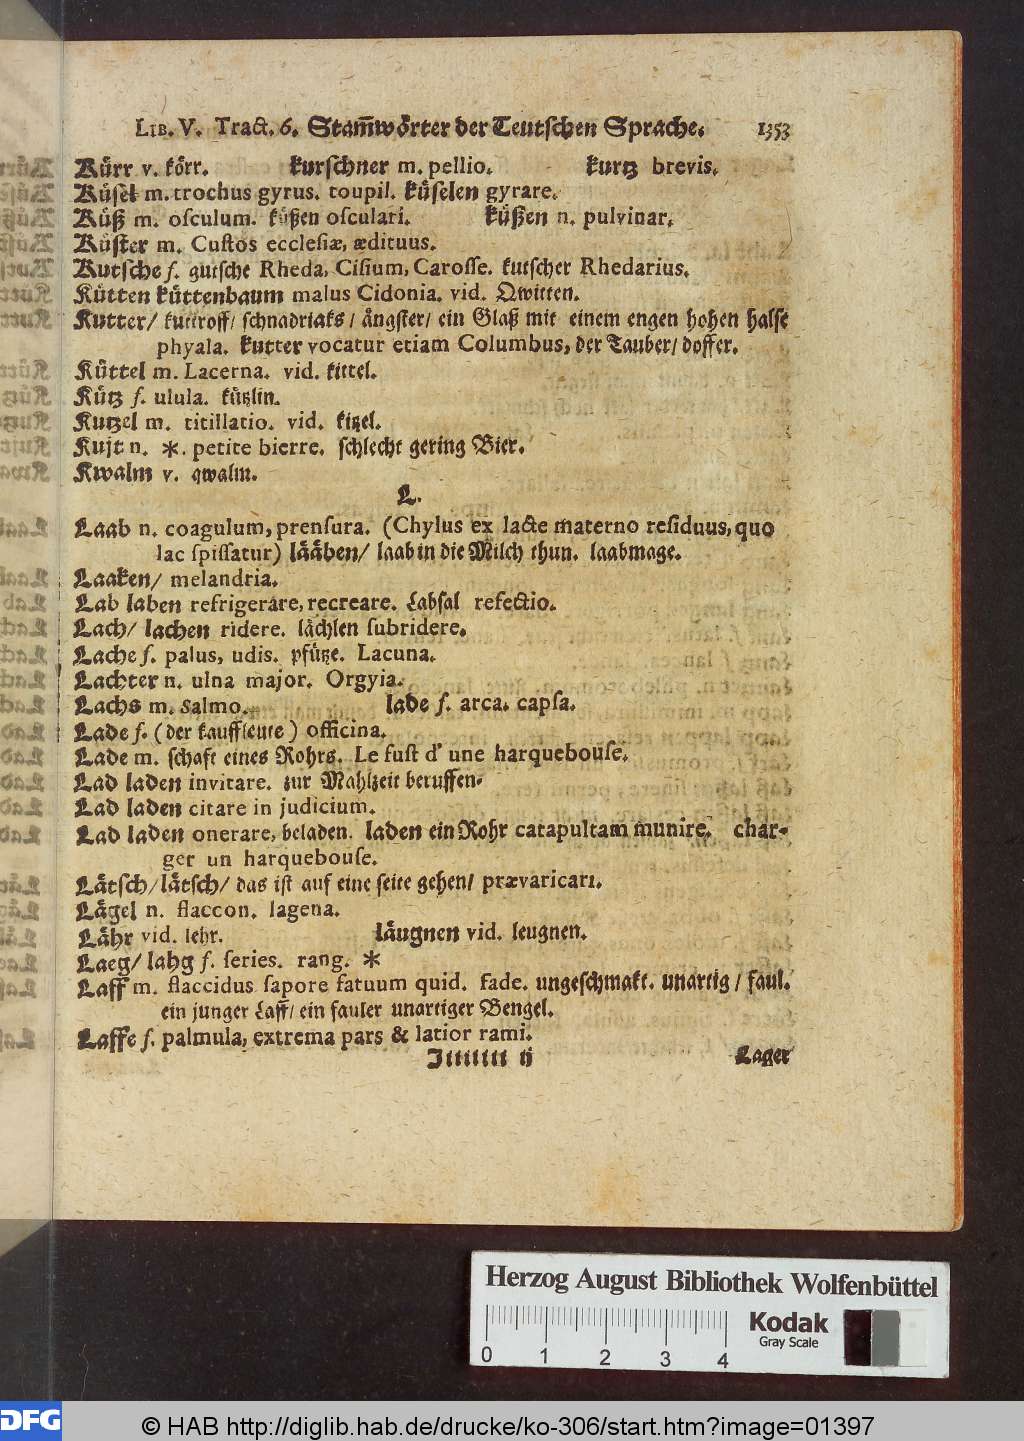 LIB. V. Tract. 6. Stam̃wörter der Teutſchen Sprache. 1353
Kürr v. körr. kurſchner m. pellio. kurtz brevis.
Küſel m. trochus gyrus. toupil. küſelen gyrare.
Küß m. oſculum. küßen oſculari. küßen n. pulvinar.
Küſter m. Cuſtos eccleſiæ, ædituus.
Kutſche f. gutſche Rheda, Ciſium, Caroſſe. kutſcher Rhedarius.
Kütten küttenbaum malus Cidonia. vid. Qwitten.
Kutter/ kuttroff/ ſchnadriaks/ ängſter/ ein Glaß mit einem engen hohen halſe
phyala. kutter vocatur etiam Columbus, der Tauber/ doffer.
Küttel m. Lacerna. vid. kittel.
Kütz f. ulula. kützlin.
Kutzel m. titillatio. vid. kitzel.
Kujt n. *. petite bierre. ſchlecht gering Bier.
Kwalm v. qwalm.
L.
Laab n. coagulum, prenſura. (Chylus ex lacte materno reſiduus, quo
lac ſpiſſatur) lääben/ laab in die Milch thun. laabmage.
Laaken/ melandria.
Lab laben refrigerare, recreare. Labſal refectio.
Lach/ lachen ridere. lächlen ſubridere.
Lache f. palus, udis. pfütze. Lacuna.
Lachter n. ulna major. Orgyia.
Lachs m. Salmo. lade f. arca. capſa.
Lade f. (der kauffleute) officina.
Lade m. ſchaft eines Rohrs. Le fuſt d' une harquebouſe.
Lad laden invitare. zur Mahlzeit beruffen.
Lad laden citare in judicium.
Lad laden onerare, beladen. laden ein Rohr catapultam munire. char-
ger un harquebouſe.
Lätſch/ lätſch/ das iſt auf eine ſeite gehen/ prævaricari.
Lägel n. flaccon. lagena.
Lähr vid. lehr. läugnen vid. leugnen.
Laeg/ lahg f. ſeries. rang. *
Laff m. flaccidus ſapore fatuum quid. fade. ungeſchmakt. unartig/ faul.
ein junger Laff/ ein fauler unartiger Bengel.
Laffe f. palmula, extrema pars & latior rami.
Jiiiiiii ij Lager
Herzog August Bibliothek Wolfenbüttel
0 1 2 3 4
Kodak
Gray Scale
DFG © HAB http://diglib.hab.de/drucke/ko-306/start.htm?image=01397